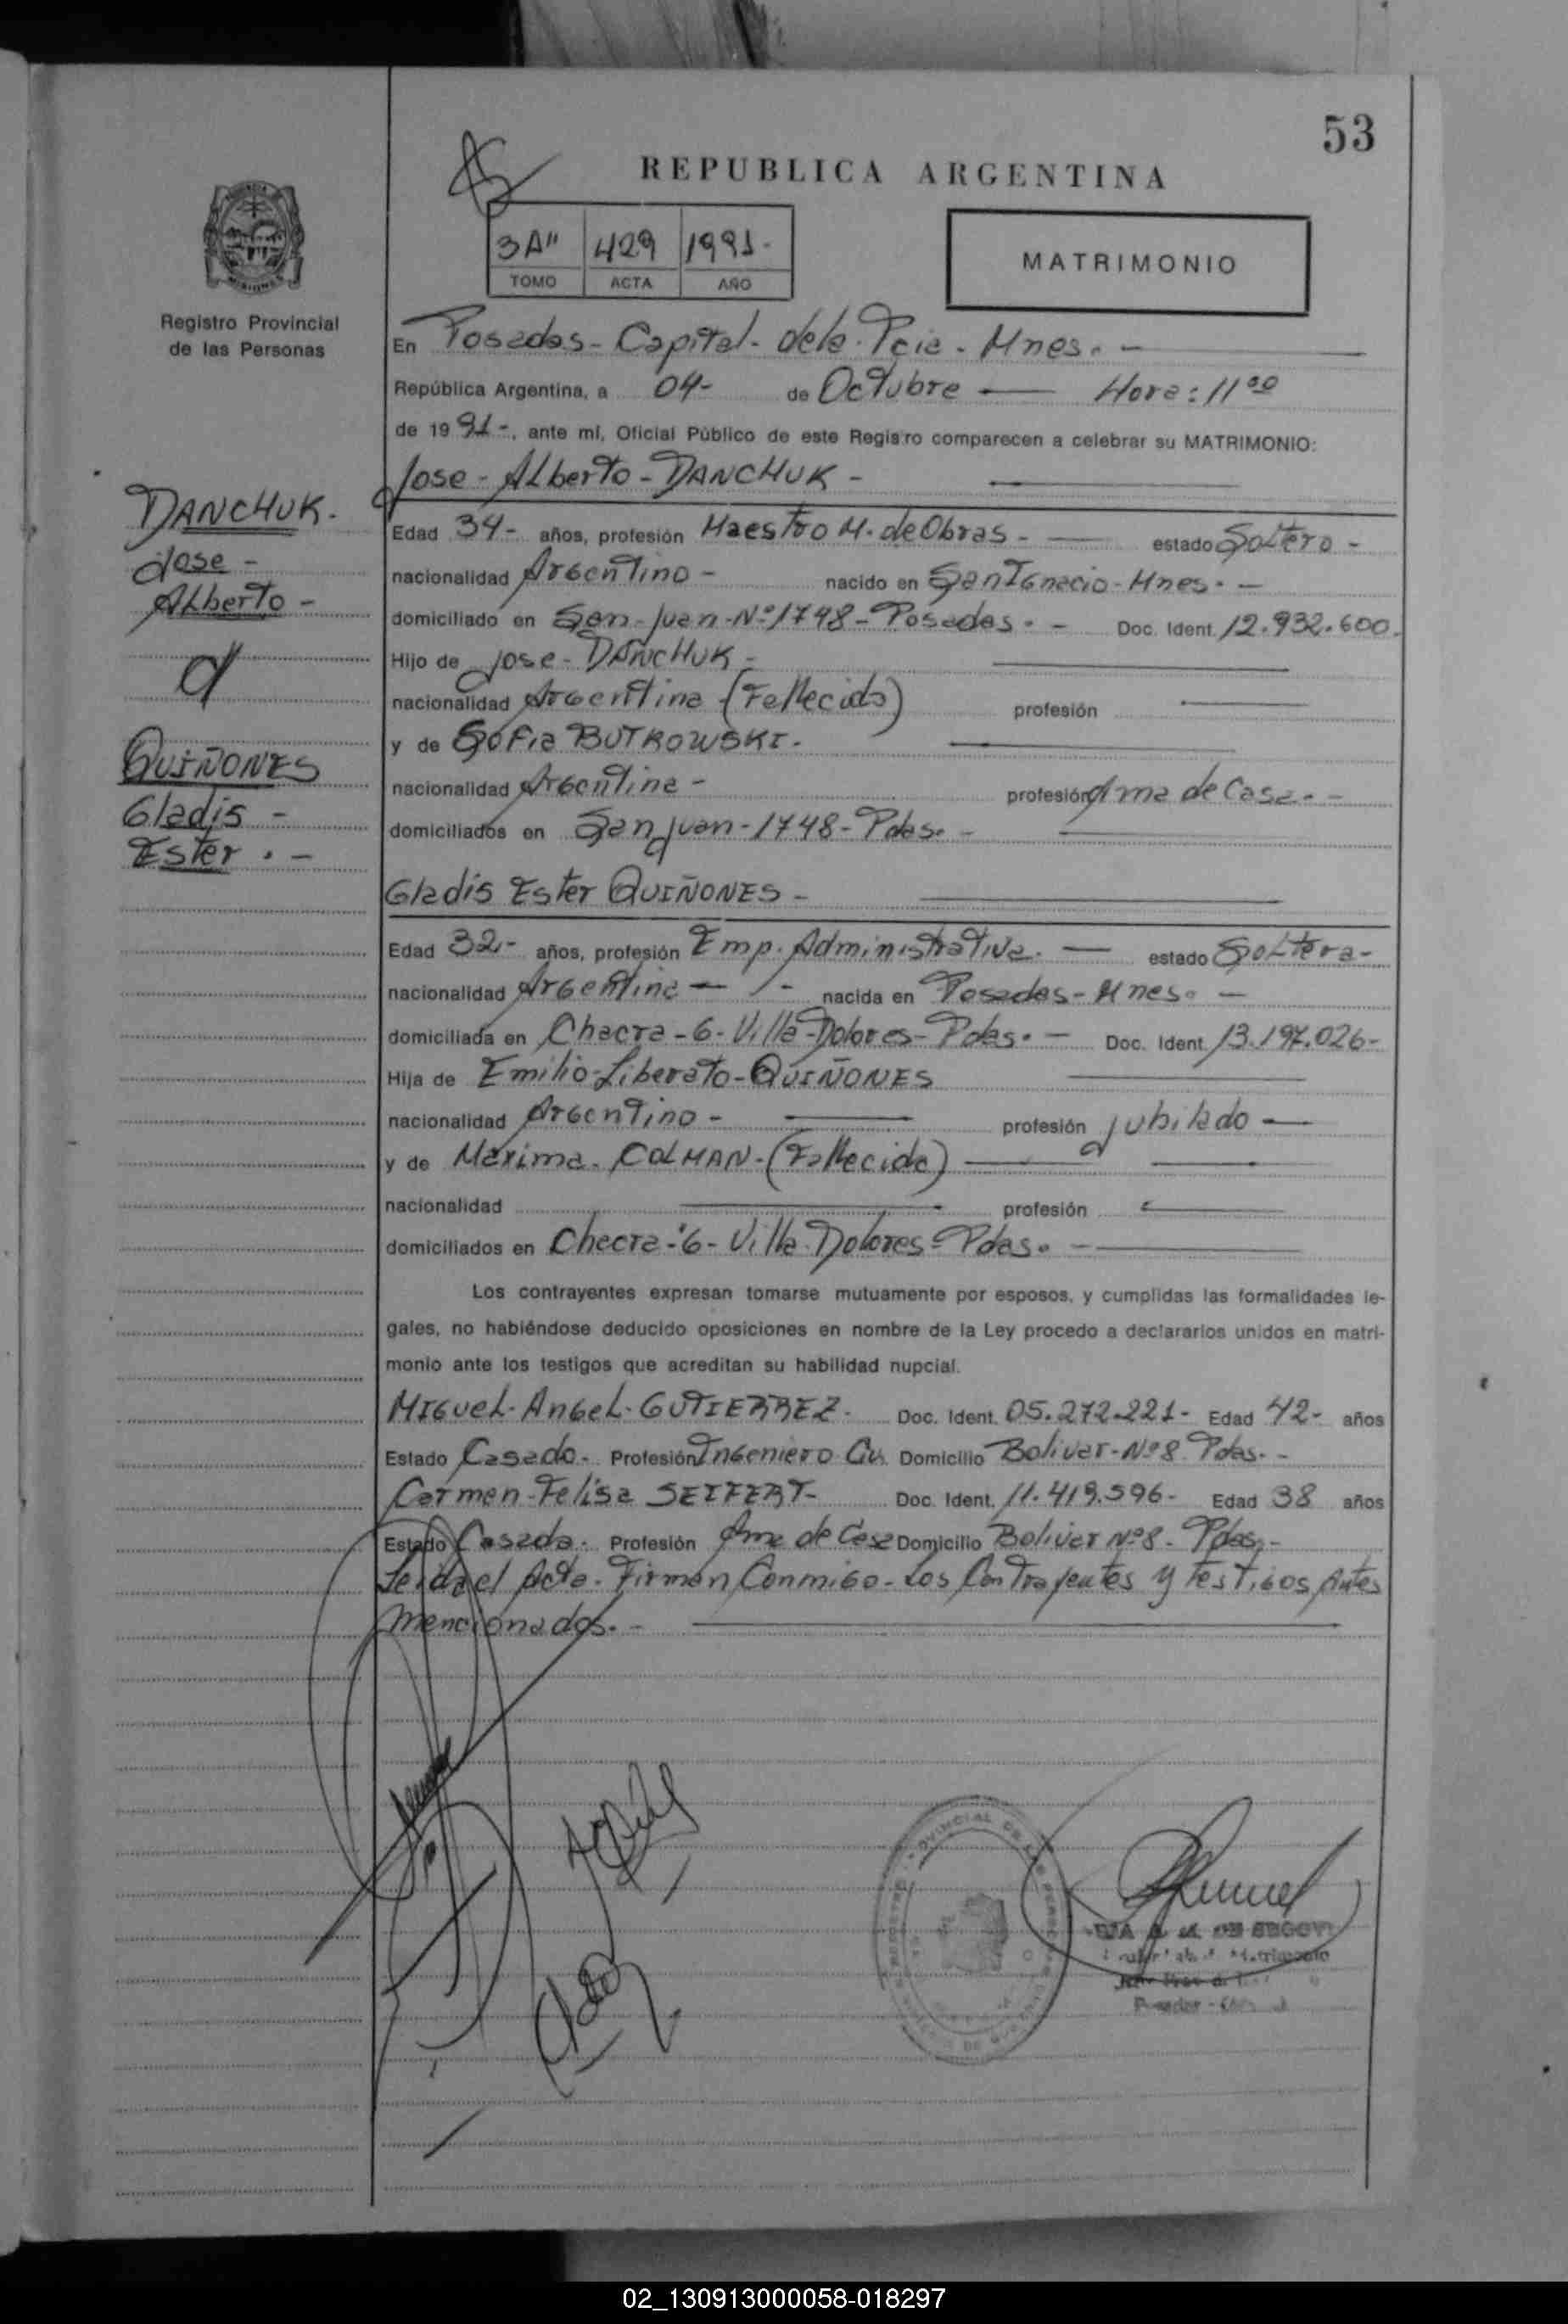 53
REPUBLICA ARGENTINA
3A" 429 1991-
TOMO ACTA AÑO
MATRIMONIO
Registro Provincial
de las Personas
En Posadas - Capital - de la Pcia - Mnes. -
República Argentina, a 04- de Octubre — Hora: 11 00
de 19 91-, ante mí, Oficial Público de este Registro comparecen a celebrar su MATRIMONIO:
Jose - ALberto - DANCHUK -
DANCHUK.
Jose -
ALberto -
Edad 34- años, profesión Maestro M. de Obras - — estado SoLtero -
nacionalidad Argentino - nacido en San Ignacio - Mnes. -
domiciliado en San - Juan - Nº 1748 - Posadas. - Doc. Ident. 12.932.600.
Hijo de Jose - DANCHUK -
nacionalidad Argentina (Fallecido) profesión —
y de SoFia BUTKOWSKI.
QUIÑONES
Gladis -
Ester . -
nacionalidad Argentina - profesión Ama de Casa. -
domiciliados en San Juan - 1748 - Pdas. -
Gladis Ester QUIÑONES -
Edad 32,- años, profesión Emp. Administrativa. — estado SoLtera -
nacionalidad Argentina — / - nacida en Posadas - Mnes. -
domiciliada en Chacra - 6 - Villa - Dolores - Pdas. - Doc. Ident. 13.197.026-
Hija de Emilio - Liberato - QUIÑONES
nacionalidad Argentino - — profesión Jubilado —
y de Maxima - COLMAN - (Fallecida) —
nacionalidad — profesión —
domiciliados en Chacra - 6 - Villa Dolores - Pdas. -
Los contrayentes expresan tomarse mutuamente por esposos, y cumplidas las formalidades le-
gales, no habiéndose deducido oposiciones en nombre de la Ley procedo a declararlos unidos en matri-
monio ante los testigos que acreditan su habilidad nupcial.
MIGueL - AnGeL - GUTIERREZ. Doc. Ident. 05.272.221- Edad 42- años
Estado Casado. Profesión Ingeniero Civ. Domicilio Bolivar - Nº 8 Pdas. -
Carmen - Felisa SEIFERT - Doc. Ident. 11.419.596- Edad 38 años
Estado Casada. Profesión Ama de Casa Domicilio Bolivar Nº 8 - Pdas. -
Leida el Acta - Firman Conmigo - Los Contrayentes y Testigos Antes
mencionados. -
02_130913000058-018297